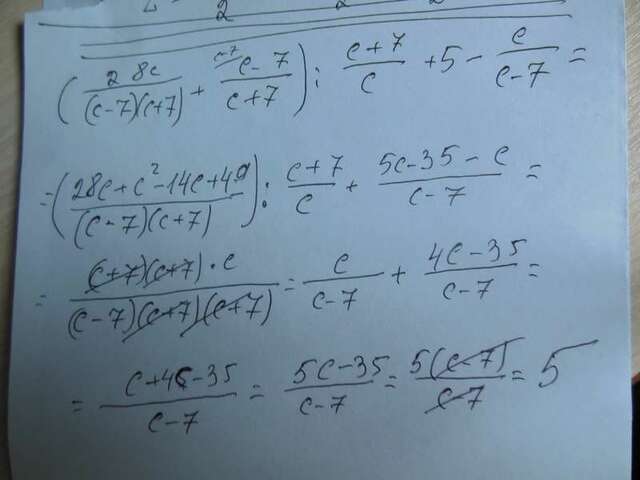 2 2 2
(28c/((c-7)(c+7)) + c-7 (c-7)/(c+7)) : (c+7)/c + 5 - c/(c-7) =
= ((28c+c²-14c+49)/((c-7)(c+7))) : (c+7)/c + (5c-35-c)/(c-7) =
= ((c+7)(c+7)·c)/((c-7)(c+7)(c+7)) = c/(c-7) + (4c-35)/(c-7) =
= (c+4c-35)/(c-7) = (5c-35)/(c-7) = 5(c-7)/(c-7) = 5